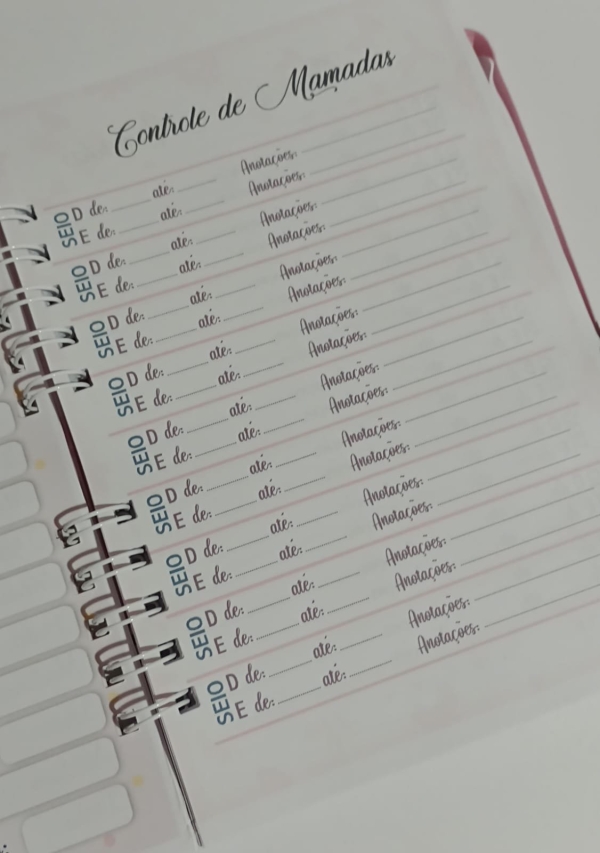 Controle de Mamadas
SEIO D de: até: Anotações:
E de: até: Anotações:
SEIO D de: até: Anotações:
E de: até: Anotações:
SEIO D de: até: Anotações:
E de: até: Anotações:
SEIO D de: até: Anotações:
E de: até: Anotações:
SEIO D de: até: Anotações:
E de: até: Anotações:
SEIO D de: até: Anotações:
E de: até: Anotações:
SEIO D de: até: Anotações:
E de: até: Anotações:
SEIO D de: até: Anotações:
E de: até: Anotações:
SEIO D de: até: Anotações:
E de: até: Anotações: